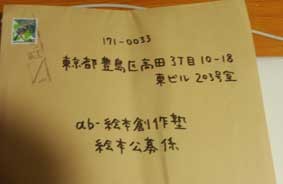 171-0033
東京都豊島区高田3丁目10-18
東ビル203号室
ab-絵本創作塾
絵本公募係